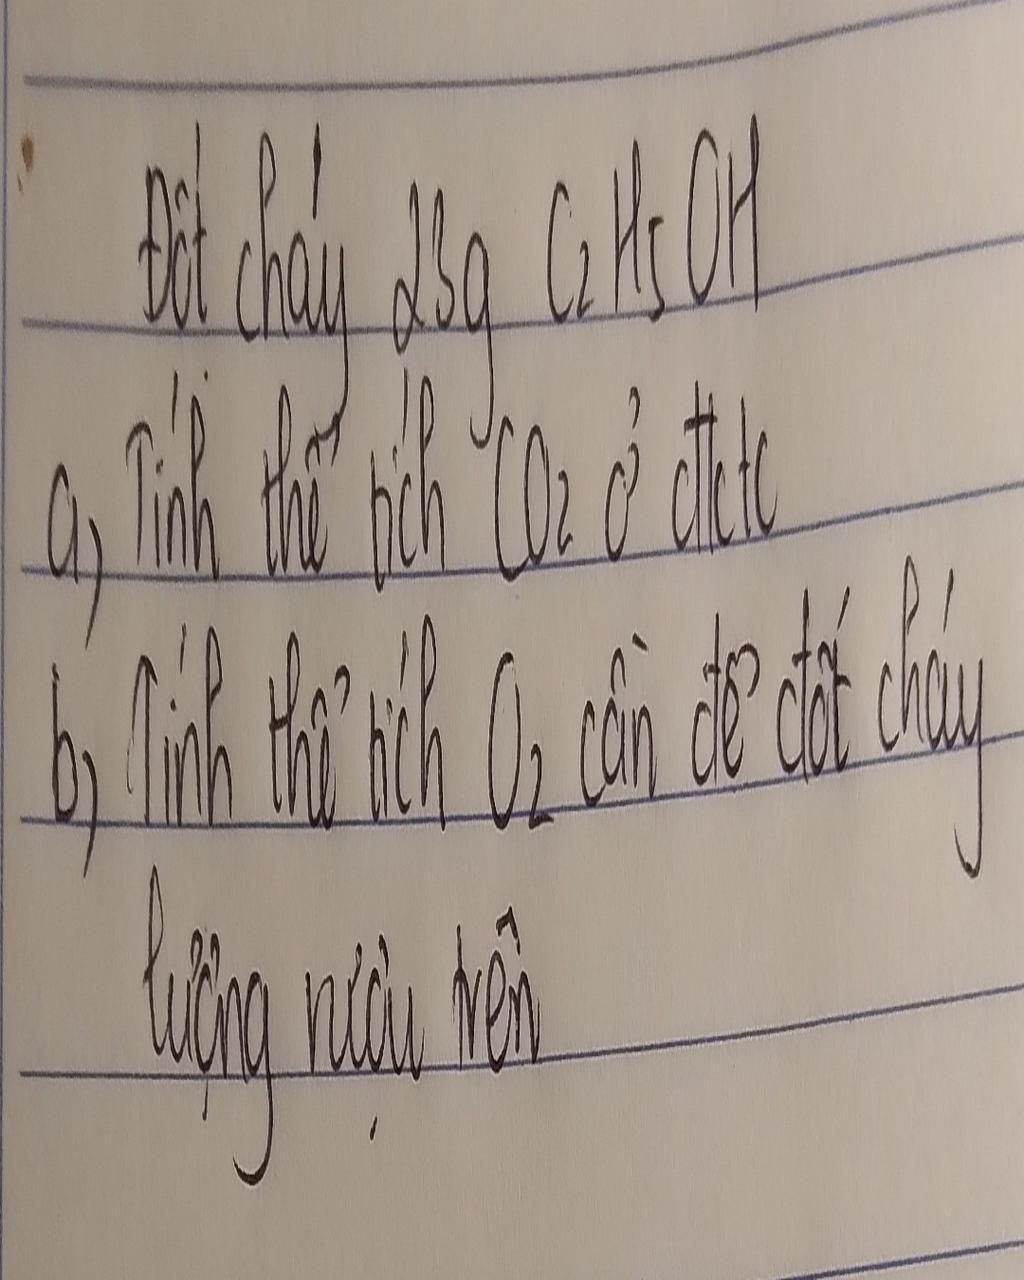 Đốt cháy 23g C₂H₅OH
a, Tính thể tích CO₂ ở đktc
b, Tính thể tích O₂ cần để đốt cháy
lượng rượu trên